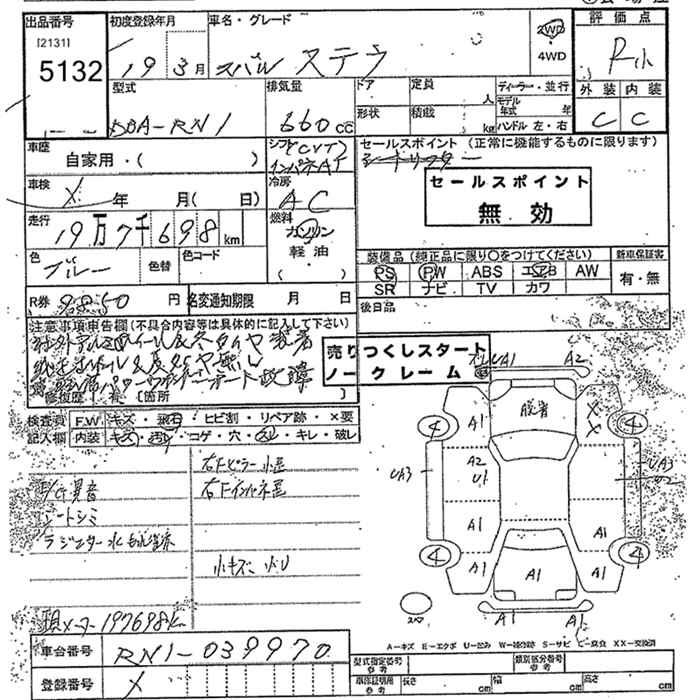 出品番号
[2131]
5132
初度登録年月
19 3月
車名・グレード
スバル ステラ
2WD
・
4WD
評価点
R小
外装 内装
C C
型式
DBA-RN1
排気量
660cc
ドア
定員
人
形状
積載
kg
ディーラー・並行
モデル年式 年
ハンドル 左・右
車歴
自家用・( )
シフト(CVT)
インパネAT
セールスポイント (正常に機能するものに限ります)
セールスポイント
無効
車検
X 年 月( 日)
冷房
AC
走行
19万7千698km
燃料
ガソリン
・
軽油
( )
色
ブルー
色替
色コード
装備品 (純正品に限り○をつけてください)
PS PW ABS エアB AW
SR ナビ TV カワ
新車保証書
有・無
R券 円
名変通知期限 月 日
後日品
注意事項申告欄(不具合内容等は具体的に記入して下さい)
修復歴 有 [箇所
売りつくしスタート
ノークレーム
検査員
記入欄
F.W キズ・飛石・ヒビ割・リペア跡・×要
内装 キズ・汚れ・コゲ・穴・スレ・キレ・破レ
右Fピラー小歪
E/G異音
右Fインパネ歪
シートシミ
ラジエター水もれ
小キズ 小U
現メーター197698k
UA1
A2
脱着
A1
X
X
4
4
UA3
A2
U1
UA3
A1
A1
4
4
A1
A1
A1
A1
A1
A-キズ E-エクボ U-凹み W-補修跡 S-サビ C-腐食 XX-交換済
車台番号
RN1-039970
登録番号
X
型式指定番号
参考
類別区分番号
参考
車庫証明用
参考
長さ cm
幅 cm
高さ cm